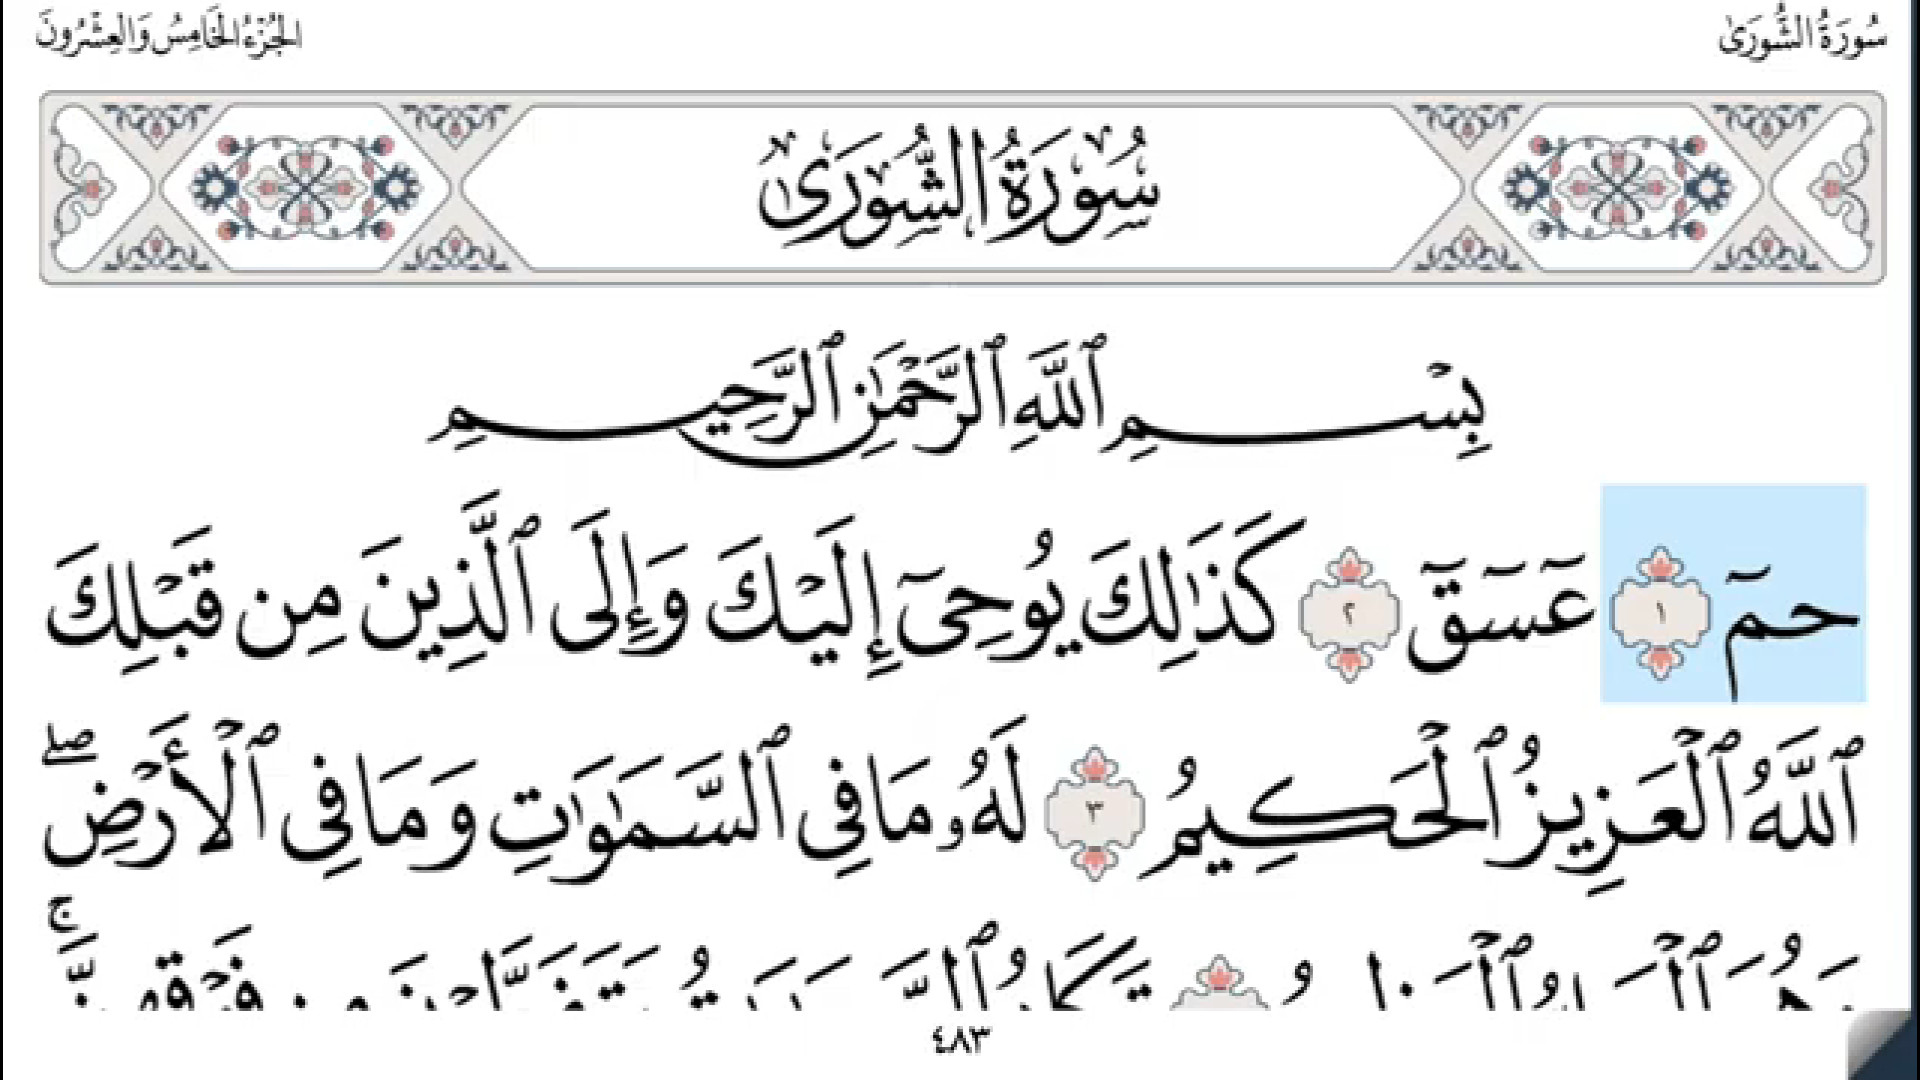 سُورَةُ الشُّورَىٰ
الجُزْءُ الخَامِسُ وَالعِشْرُونَ
سُورَةُ الشُّورَىٰ
بِسْمِ ٱللَّهِ ٱلرَّحْمَٰنِ ٱلرَّحِيمِ
حمٓ ١ عٓسٓقٓ ٢ كَذَٰلِكَ يُوحِىٓ إِلَيْكَ وَإِلَى ٱلَّذِينَ مِن قَبْلِكَ
ٱللَّهُ ٱلْعَزِيزُ ٱلْحَكِيمُ ٣ لَهُۥ مَا فِى ٱلسَّمَٰوَٰتِ وَمَا فِى ٱلْأَرْضِۖ
٤٨٣